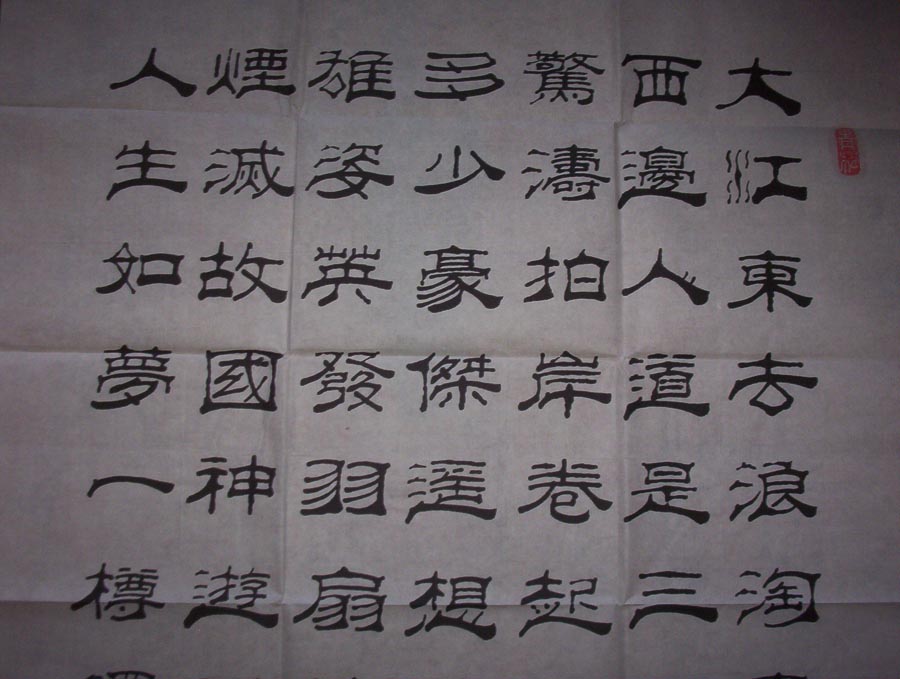 大江東去浪淘
西邊人道是三
驚濤拍岸卷起
多少豪傑遥想
雄姿英發羽扇
煙滅故國神遊
人生如夢一樽